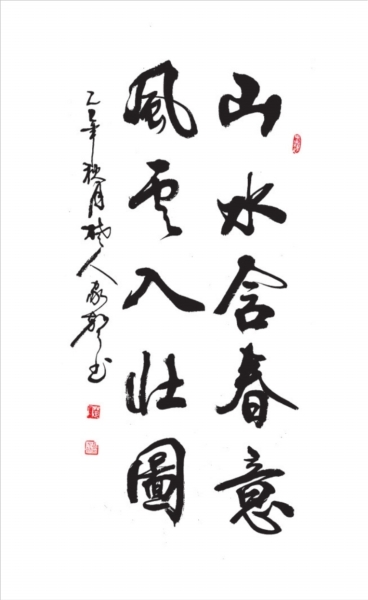 山水含春意
風雲入壮圖
乙未年秋月 人家 書